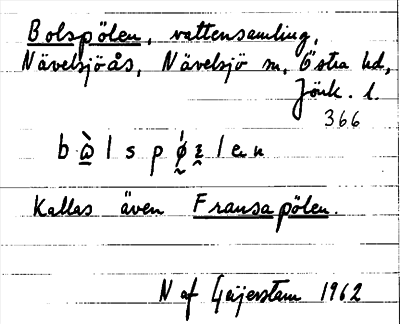 Bolspölen, vattensamling,
Nävelsjöås, Nävelsjö sn, Östra hd,
Jönk. l.
366
b ὼ l s p ǿ ꭋ l ə n
Kallas även Fransapölen.
N af Geijerstam 1962